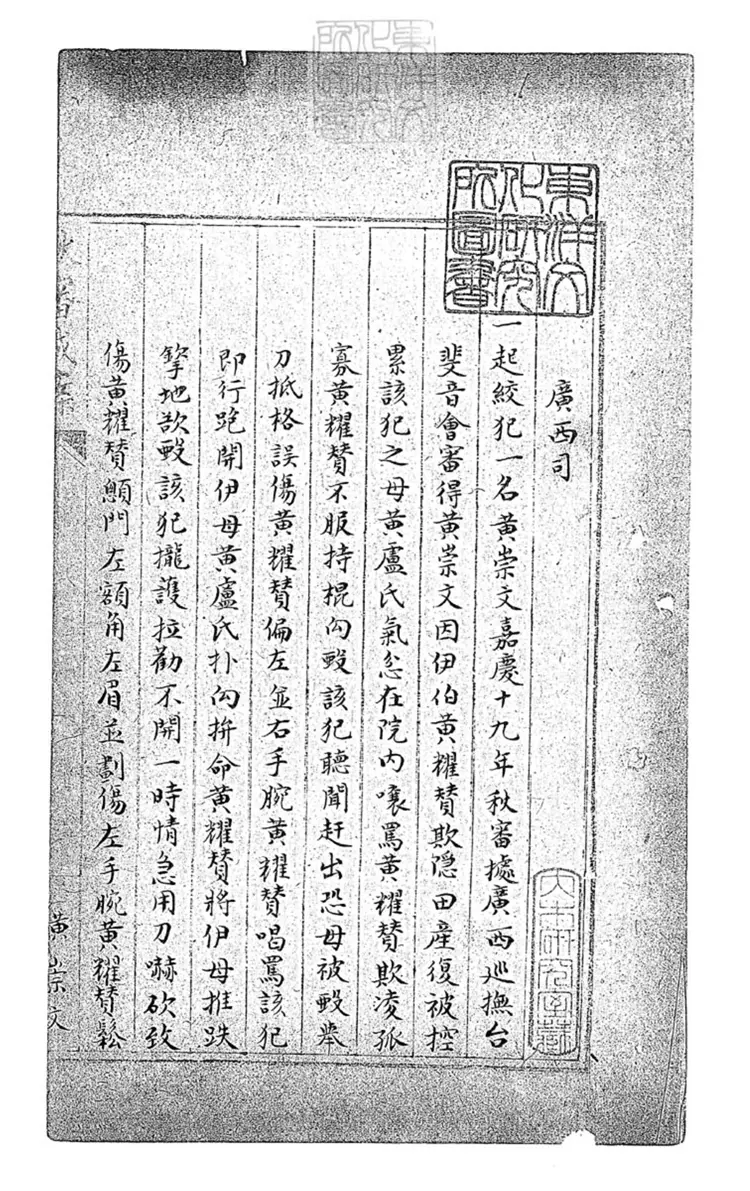 東洋文
化研究
所圖書
廣西司
一起絞犯一名黃崇文嘉慶十九年秋審據廣西巡撫台
斐音會審得黃崇文因伊伯黃耀贊欺隱田產復被控
累該犯之母黃盧氏氣忿在院內嚷罵黃耀贊欺凌孤
寡黃耀贊不服持棍向毆該犯聽聞赶出恐母被毆舉
刀抵格誤傷黃耀贊偏左並右手腕黃耀贊喝罵該犯
即行跑開伊母黃盧氏扑向拚命黃耀贊將伊母推跌
拏地欲毆該犯攏護拉勸不開一時情急用刀嚇砍致
傷黃耀贊顖門左額角左眉並劃傷左手腕黃耀贊鬆
黃崇文